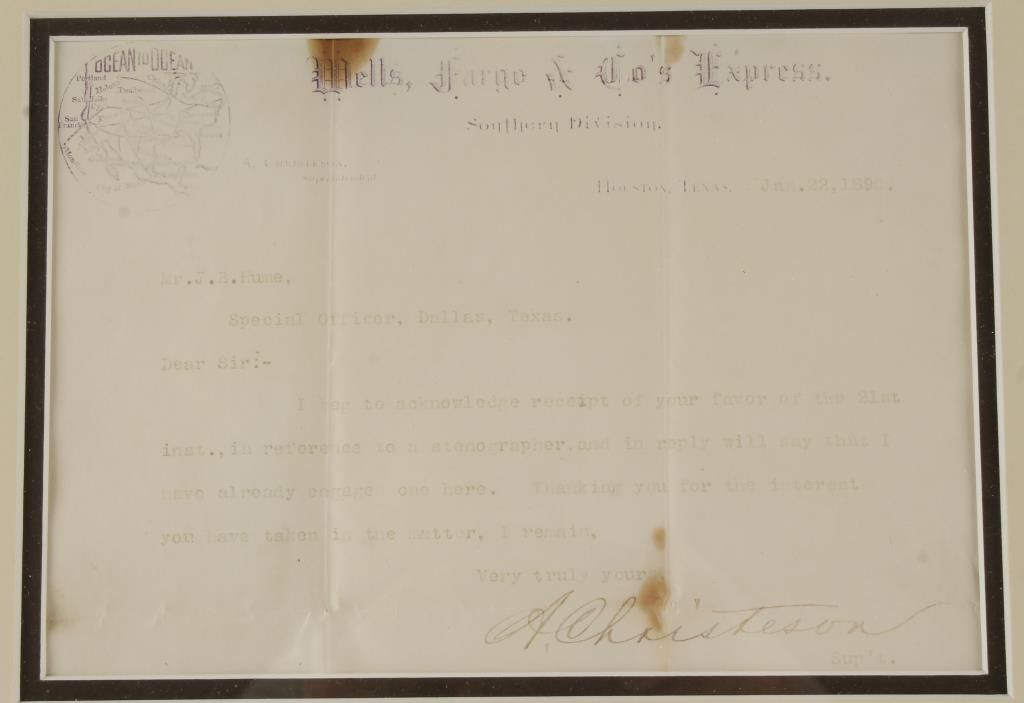 OCEAN TO OCEAN
Portland
Salt Lake
San
Wells, Fargo & Co's Express.
Southern Division.
A. CHRISTESON,
Superintendent.
HOUSTON, TEXAS, Jan.22,189
Mr.J.B.Hume,
Special Officer, Dallas, Texas.
Dear Sir:-
I beg to acknowledge receipt of your favor of the 21st
inst.,in reference to a stenographer,and in reply will say that I
have already engaged one here. Thanking you for the interest
you have taken in the matter, I remain,
Very truly yours,
A. Christeson
Sup't.